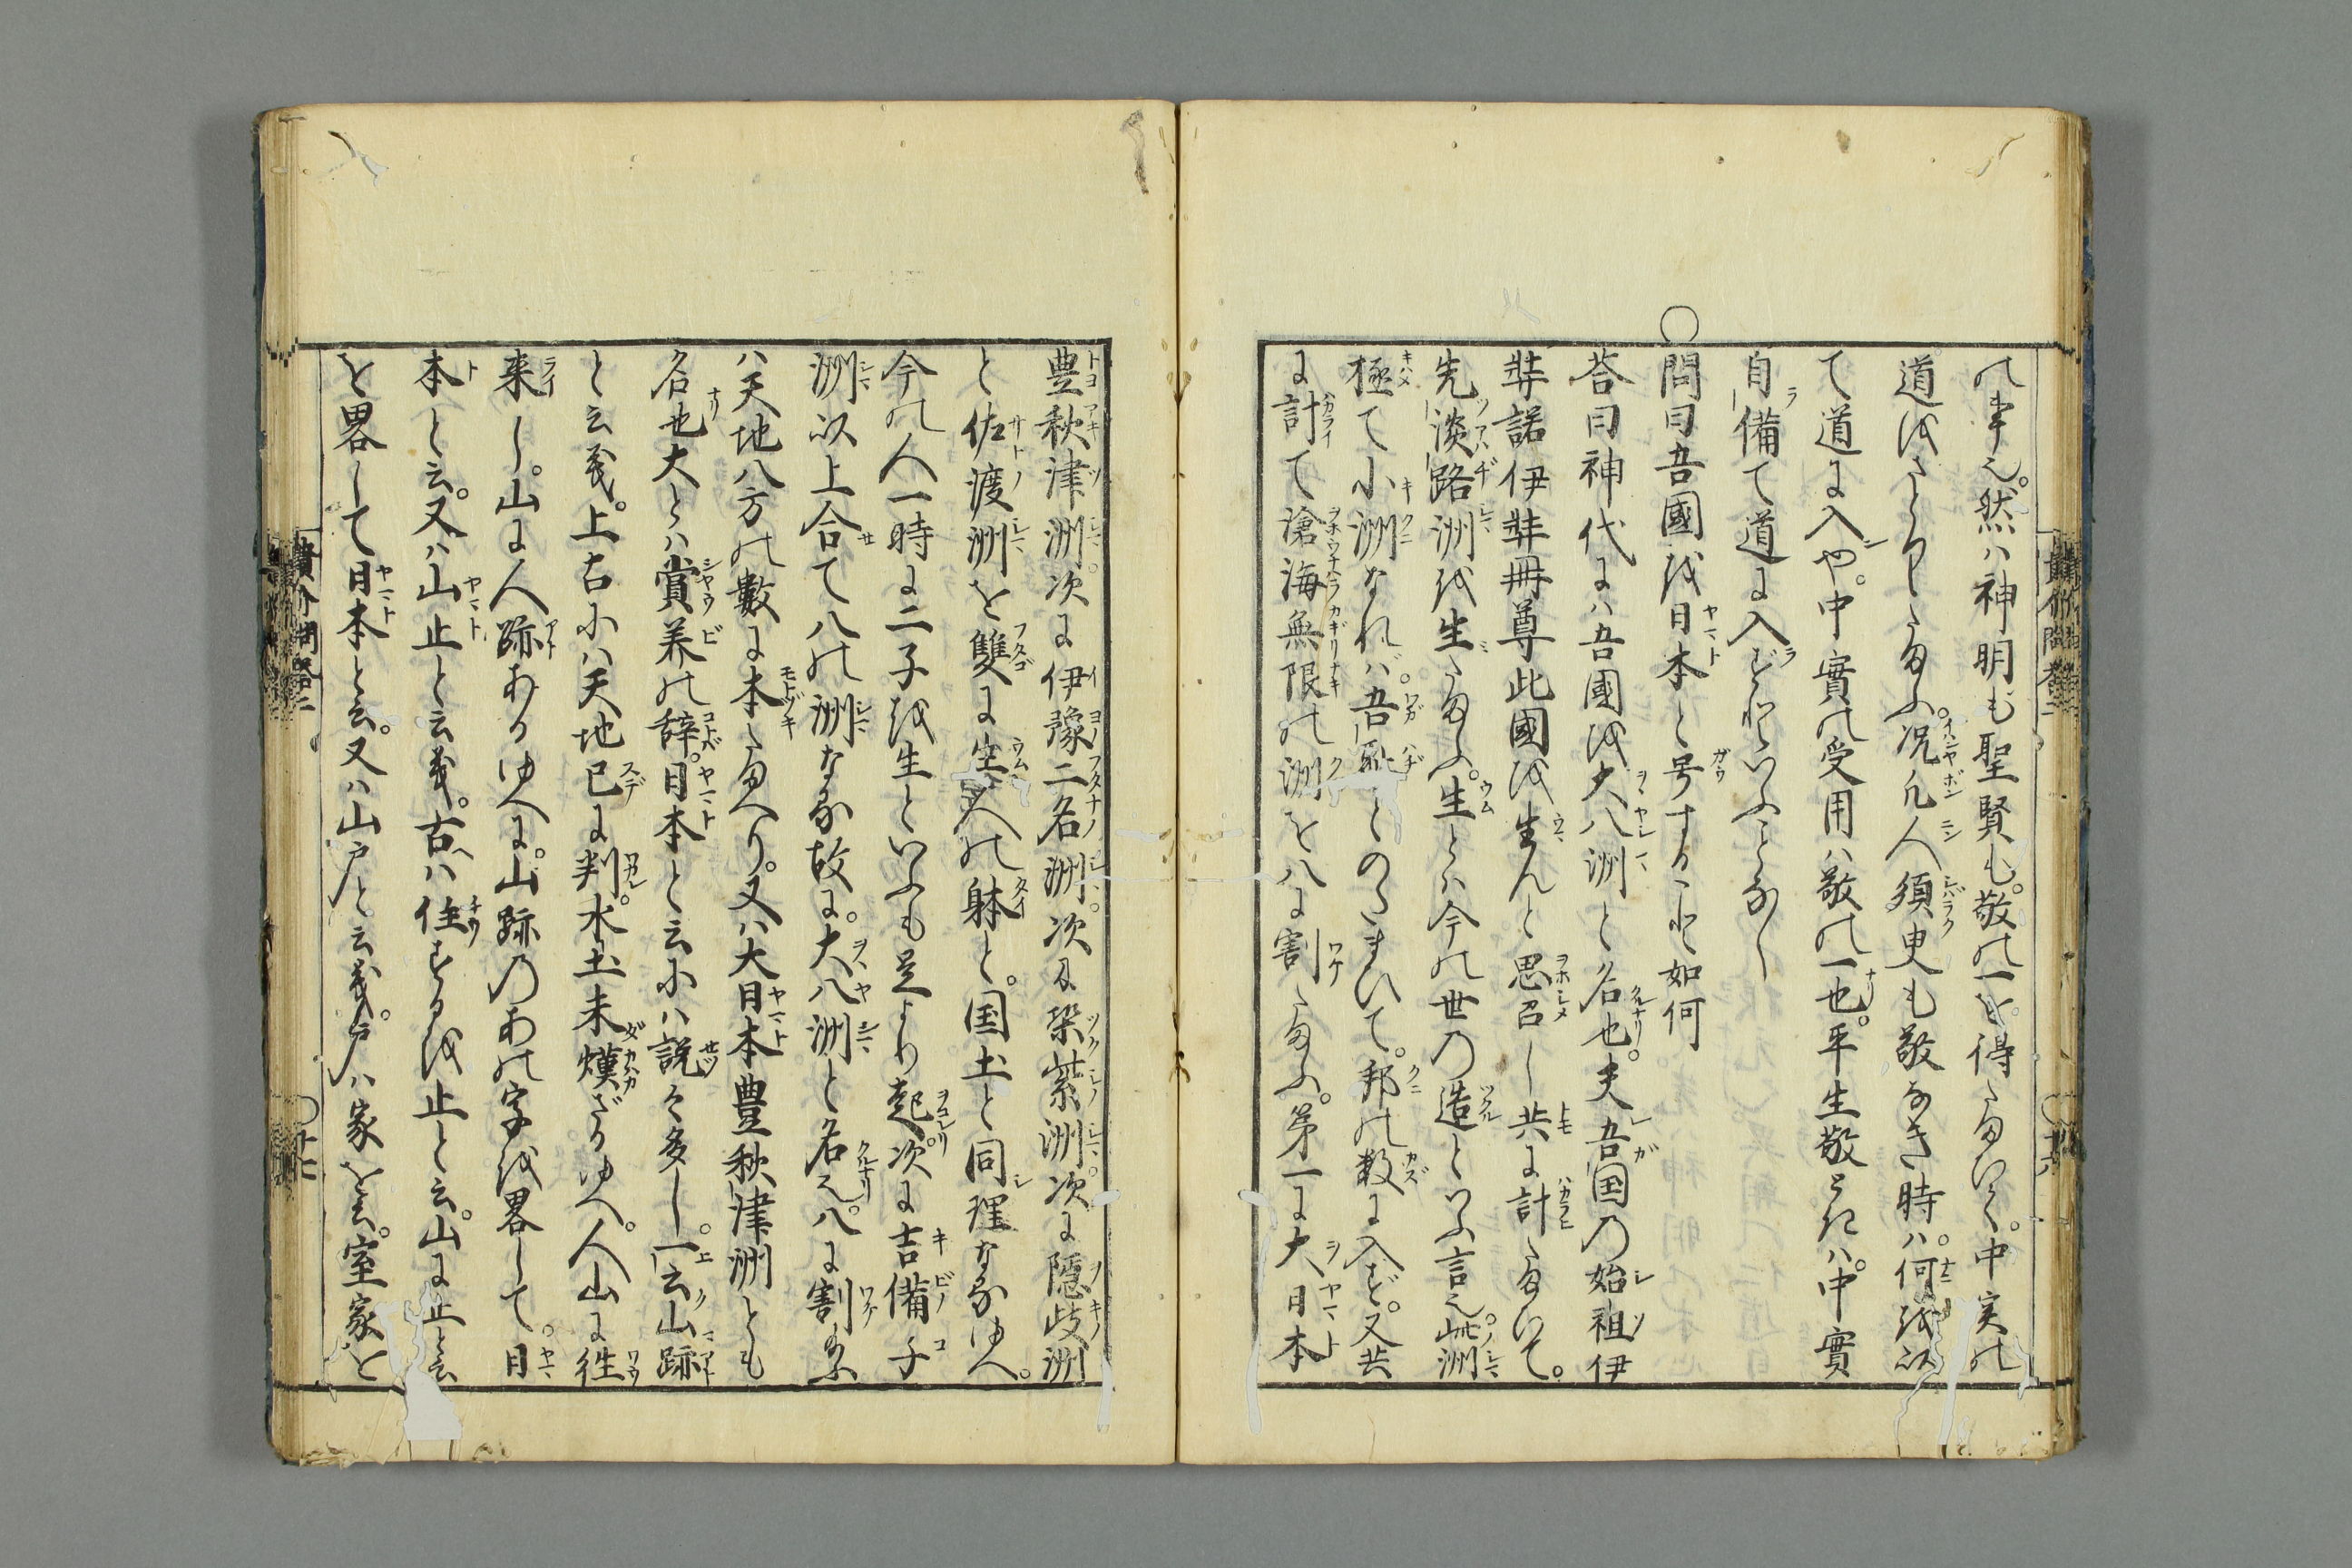 の事也。然ハ神明も聖賢も。敬の一を得たまひて。中実の
道をさとりたまふ。况凢人須臾も敬なき時ハ。何を以
て道に入や。中實の受用ハ敬の一也。平生敬ときハ。中實
自備て道に入ずといふことなし
○問曰吾國を日本と号すること如何
荅曰神代にハ吾國を大八洲と名也。夫吾国の始祖伊
弉諾伊弉冊尊此國を生んと思召し共に計たまひて。
先淡路洲を生たまふ。生とハ今の世の造といふ言也。此洲
極て小洲なれバ。吾恥とのたまひて。邦の数に入ず。又共
に計て滄海無限の洲を八に割たまふ。第一に大日本
豊秋津洲。次に伊豫二名洲。次に筑紫洲。次に隠歧洲
と佐渡洲を雙に生。人の躰と。国土と同理なるゆへ。
今の人一時に二子を生といふも是より起。次に吉備子
洲以上合て八の洲なる故に。大八洲と名也。八に割給ふ
ハ天地八方の數に本たまへり。又ハ大日本豊秋津洲とも
名也大とハ賞美の辞。日本と云にハ説々多し。一云山跡
と云義。上古にハ天地已に判。水土未熯ざるゆへ。人山に徃
来し。山に人跡あるゆへに。山跡のあの字を畧して。日
本と云。又ハ山止と云義。古ハ住するを止と云。山に止と云
を畧して日本と云。又ハ山戸と云義。戸ハ家を云。室家と